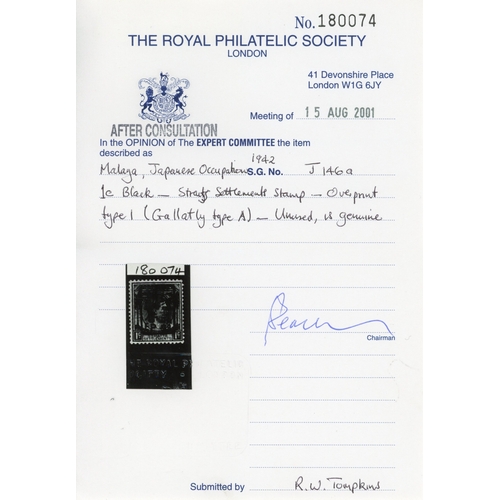 No. 180074
THE ROYAL PHILATELIC SOCIETY
LONDON
41 Devonshire Place
London W1G 6JY
Meeting of 15 AUG 2001
AFTER CONSULTATION
In the OPINION of The EXPERT COMMITTEE the item
described as
Malaya, Japanese Occupation 1942 S.G. No. J146a
1c Black – Straits Settlements Stamp – Overprint
type 1 (Gallatly type A) – Unused, is genuine
180 074
Chairman
Submitted by R.W. Tompkins